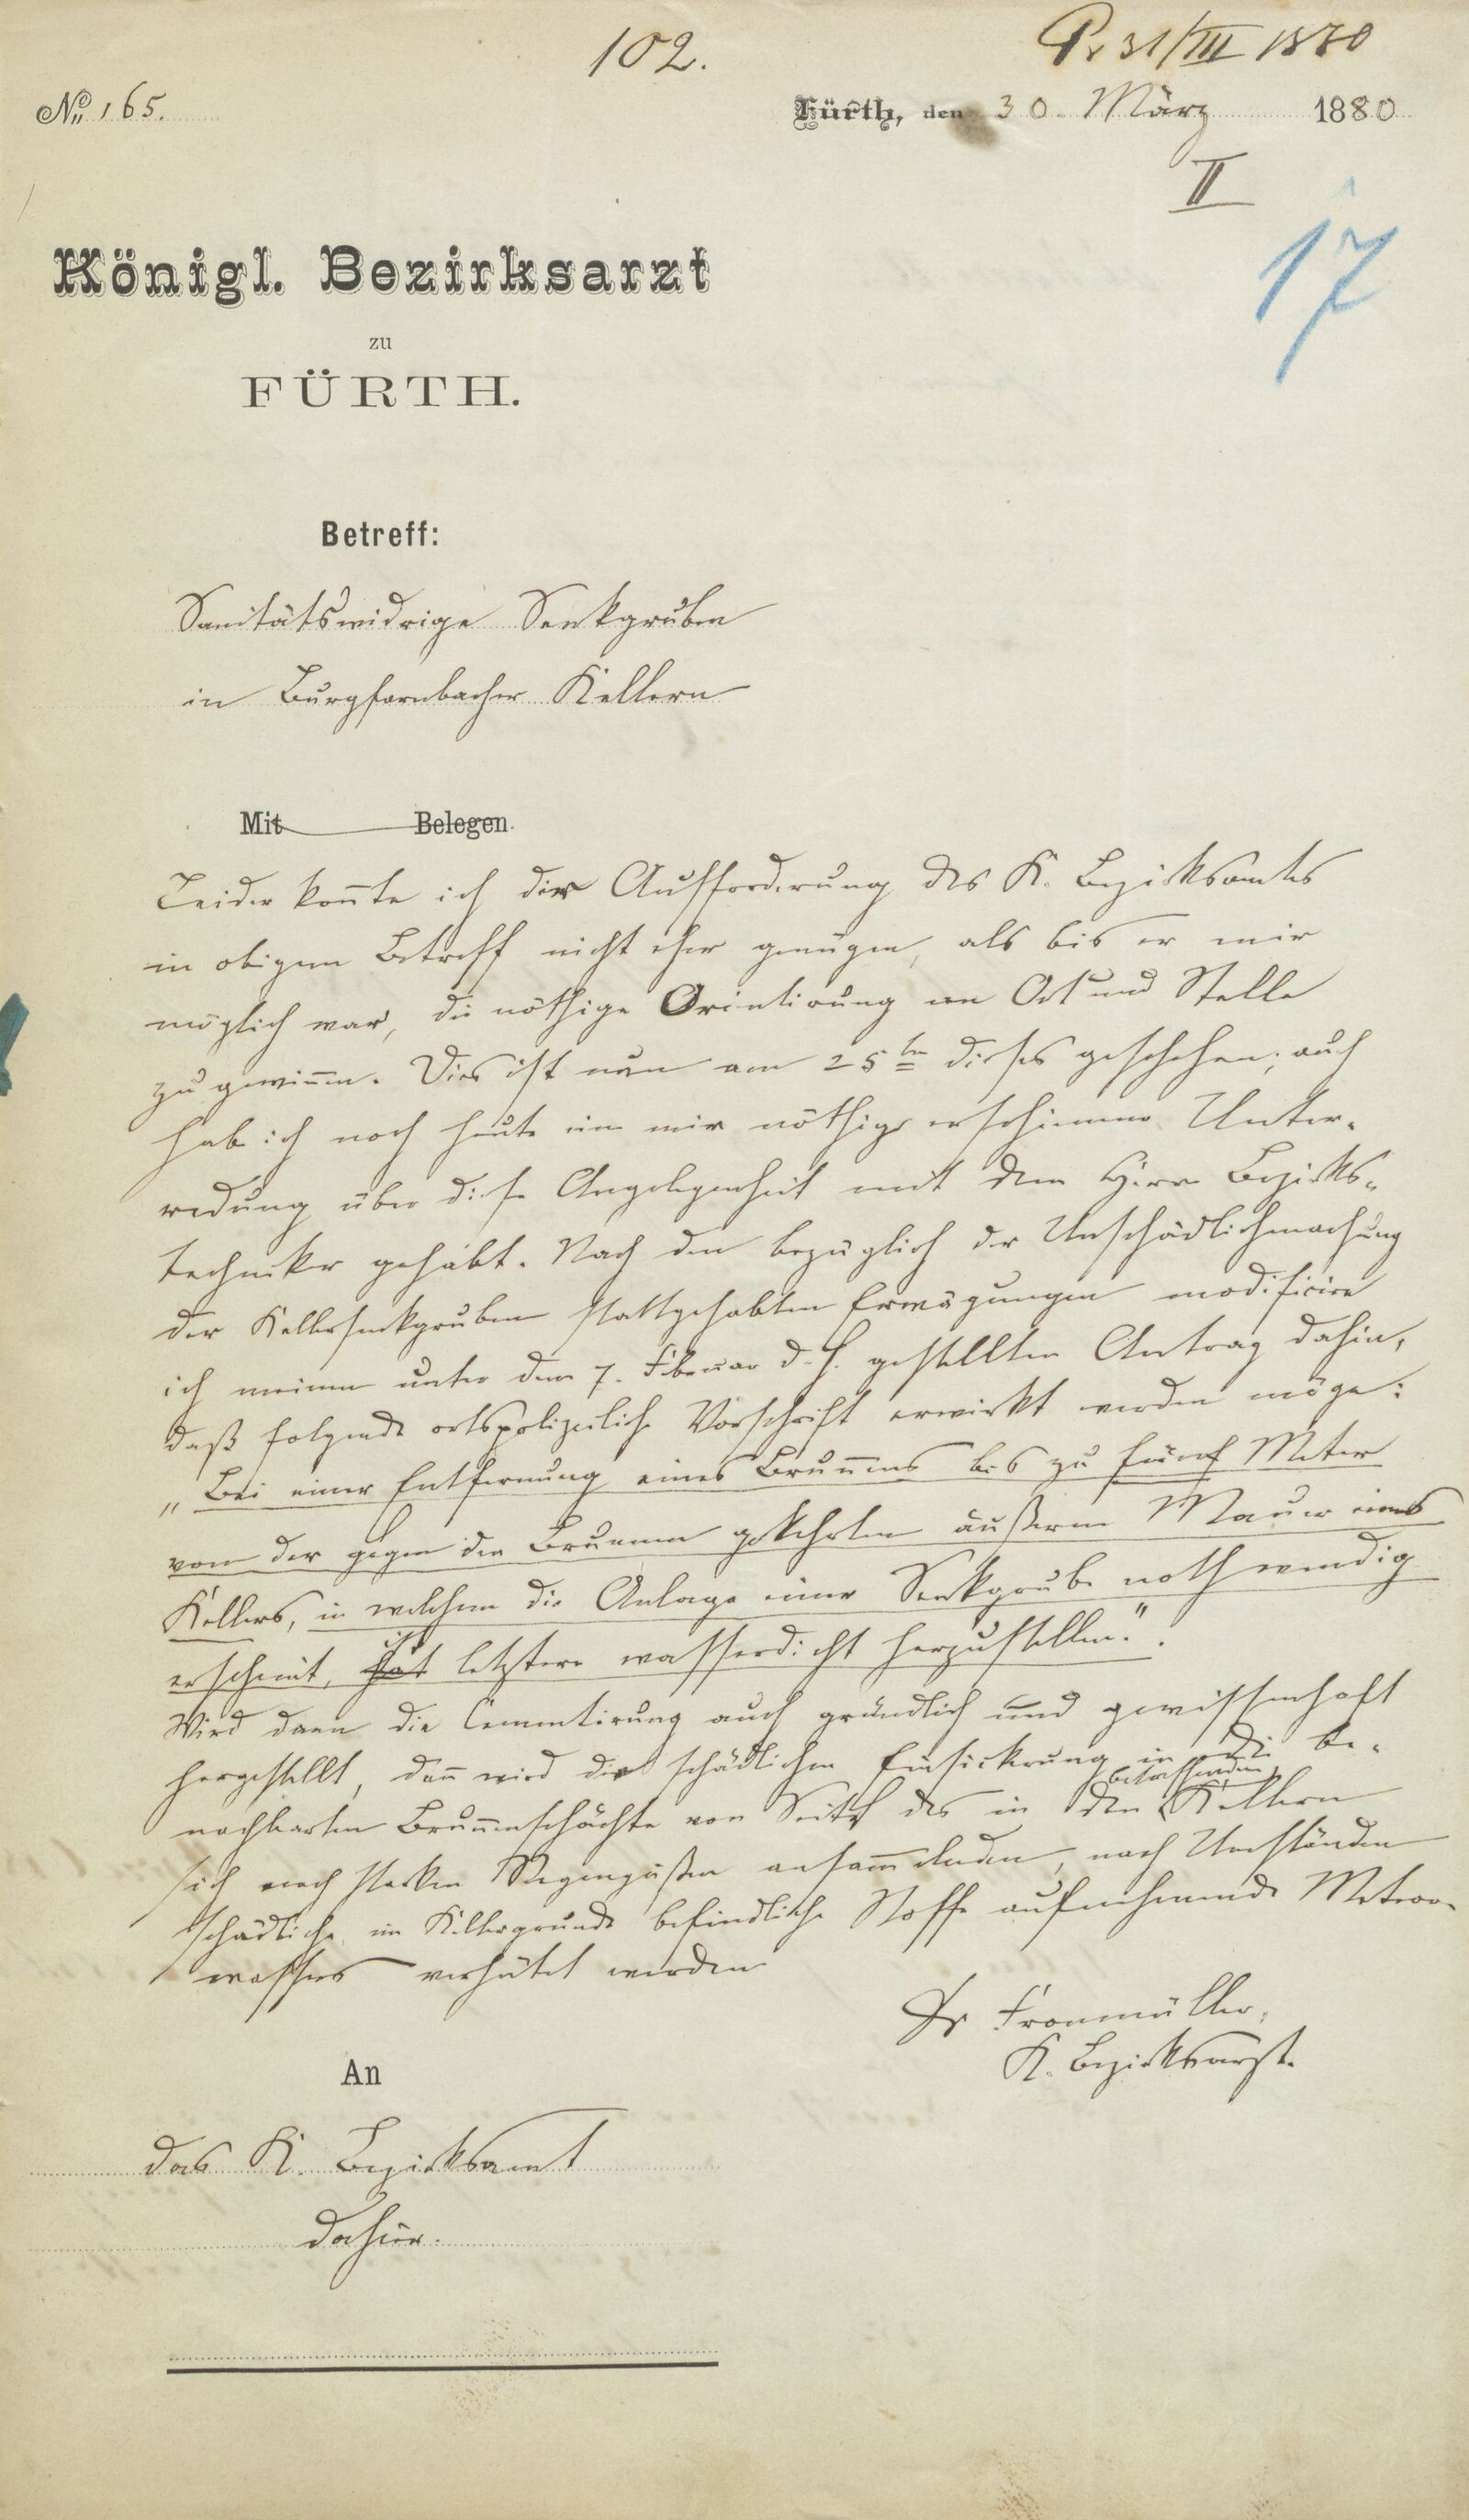 102.
Pr 31/III 1880
No. 165.
Fürth, den 30. März 1880
II
17
Königl. Bezirksarzt
zu
FÜRTH.
Betreff:
Sanitätswidrige Senkgruben
in Burgfarnbacher Kellern
Mit Belegen.
Leider konnte ich der Aufforderung des K. Bezirksamtes
in obigem Betreff nicht eher genügen, als bis er mir
möglich war, die nöthige Orientirung an Ort und Stelle
zu gewinnen. Dies ist nun am 25ten dieses geschehen; auch
hab ich noch heute eine mir nöthig erschienene Unter-
redung über diese Angelegenheit mit dem Herrn Bezirks-
techniker gehabt. Nach den bezüglich der Unschädlichmachung
der Kellersenkgruben stattgehabten Erwägungen modificire
ich meinen unter dem 7. Februar d. J. gestellten Antrag dahin,
daß folgende ortspolizeiliche Vorschrift erwirkt werden möge:
„Bei einer Entfernung eines Brunnens bis zu fünf Meter
von der gegen den Brunnen gekehrten äußeren Mauer eines
Kellers, in welchem die Anlage einer Senkgrube nothwendig
erscheint, hat ist letztere wasserdicht herzustellen.".
Wird dann die Cementirung auch gründlich und gewissenhaft
hergestellt, dann wird die schädliche Einsickerung in die be-
nachbarten Brunnenschächte von Seite des in den betreffenden Kellern
sich nach starken Regengüßen ansammelnden, nach Umständen
schädliche im Kellergrunde befindliche Stoffe aufnehmende Meteor-
wassers verhütet werden
Dr Fronmüller,
K. Bezirksarzt.
An
das K. Bezirksamt
dahier.